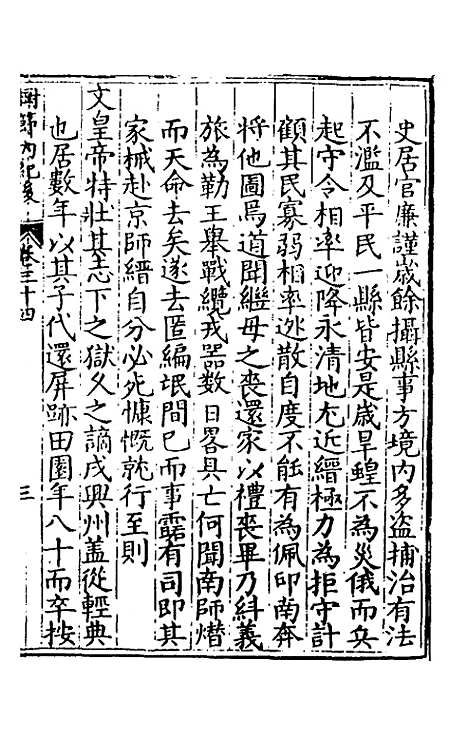 史居官廉謹歲餘攝縣事方境內多盜捕治有法
不濫及平民一縣皆安是歲旱蝗不為災俄而兵
起守令相率迎降永清地尤近縉極力為拒守計
顧其民寡弱相率逃散自度不能有為佩印南奔
將他圖焉道聞繼母之喪還家以禮喪畢乃糾義
旅為勤王舉戰纜戎器數日畧具亡何聞南師熸
而天命去矣遂去匿編氓間已而事露有司即其
家械赴京師縉自分必死慷慨就行至則
文皇帝特壯其志下之獄久之謫戍興州蓋從輕典
也居數年以其子代還屏跡田園年八十而卒按
卷三十四
三